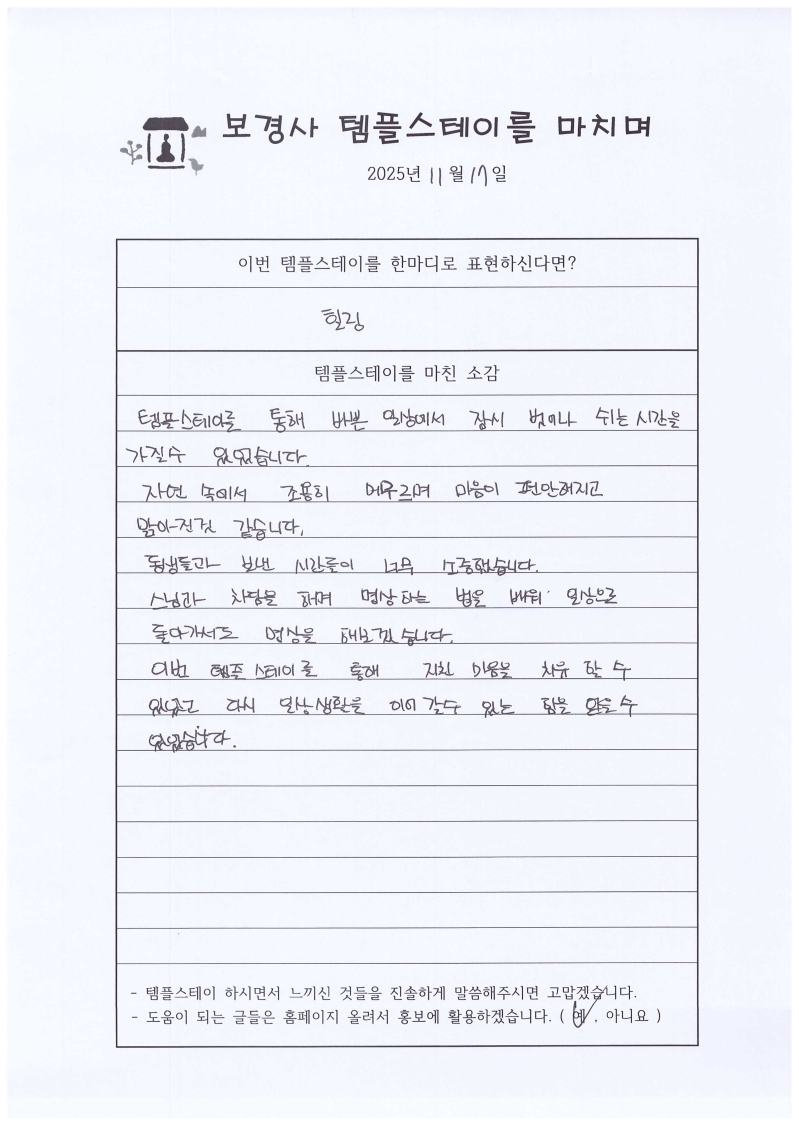 보경사 템플스테이를 마치며
2025년 11월 17일
이번 템플스테이를 한마디로 표현하신다면?
힐링
템플스테이를 마친 소감
템플스테이를 통해 바쁜 일상에서 잠시 벗어나 쉬는 시간을
가질수 있었습니다.
자연 속에서 조용히 머무르며 마음이 편안해지고
맑아진것 같습니다.
동생들과 보낸 시간들이 너무 소중했습니다.
스님과 차담을 하며 명상하는 법을 배워 일상으로
돌아가서도 명상을 해보겠습니다.
이번 템플스테이를 통해 지친 마음을 치유 할 수
있었고 다시 일상생활을 이어갈수 있는 힘을 얻을수
있었습니다.
- 템플스테이 하시면서 느끼신 것들을 진솔하게 말씀해주시면 고맙겠습니다.
- 도움이 되는 글들은 홈페이지 올려서 홍보에 활용하겠습니다. ( 예 , 아니요 )